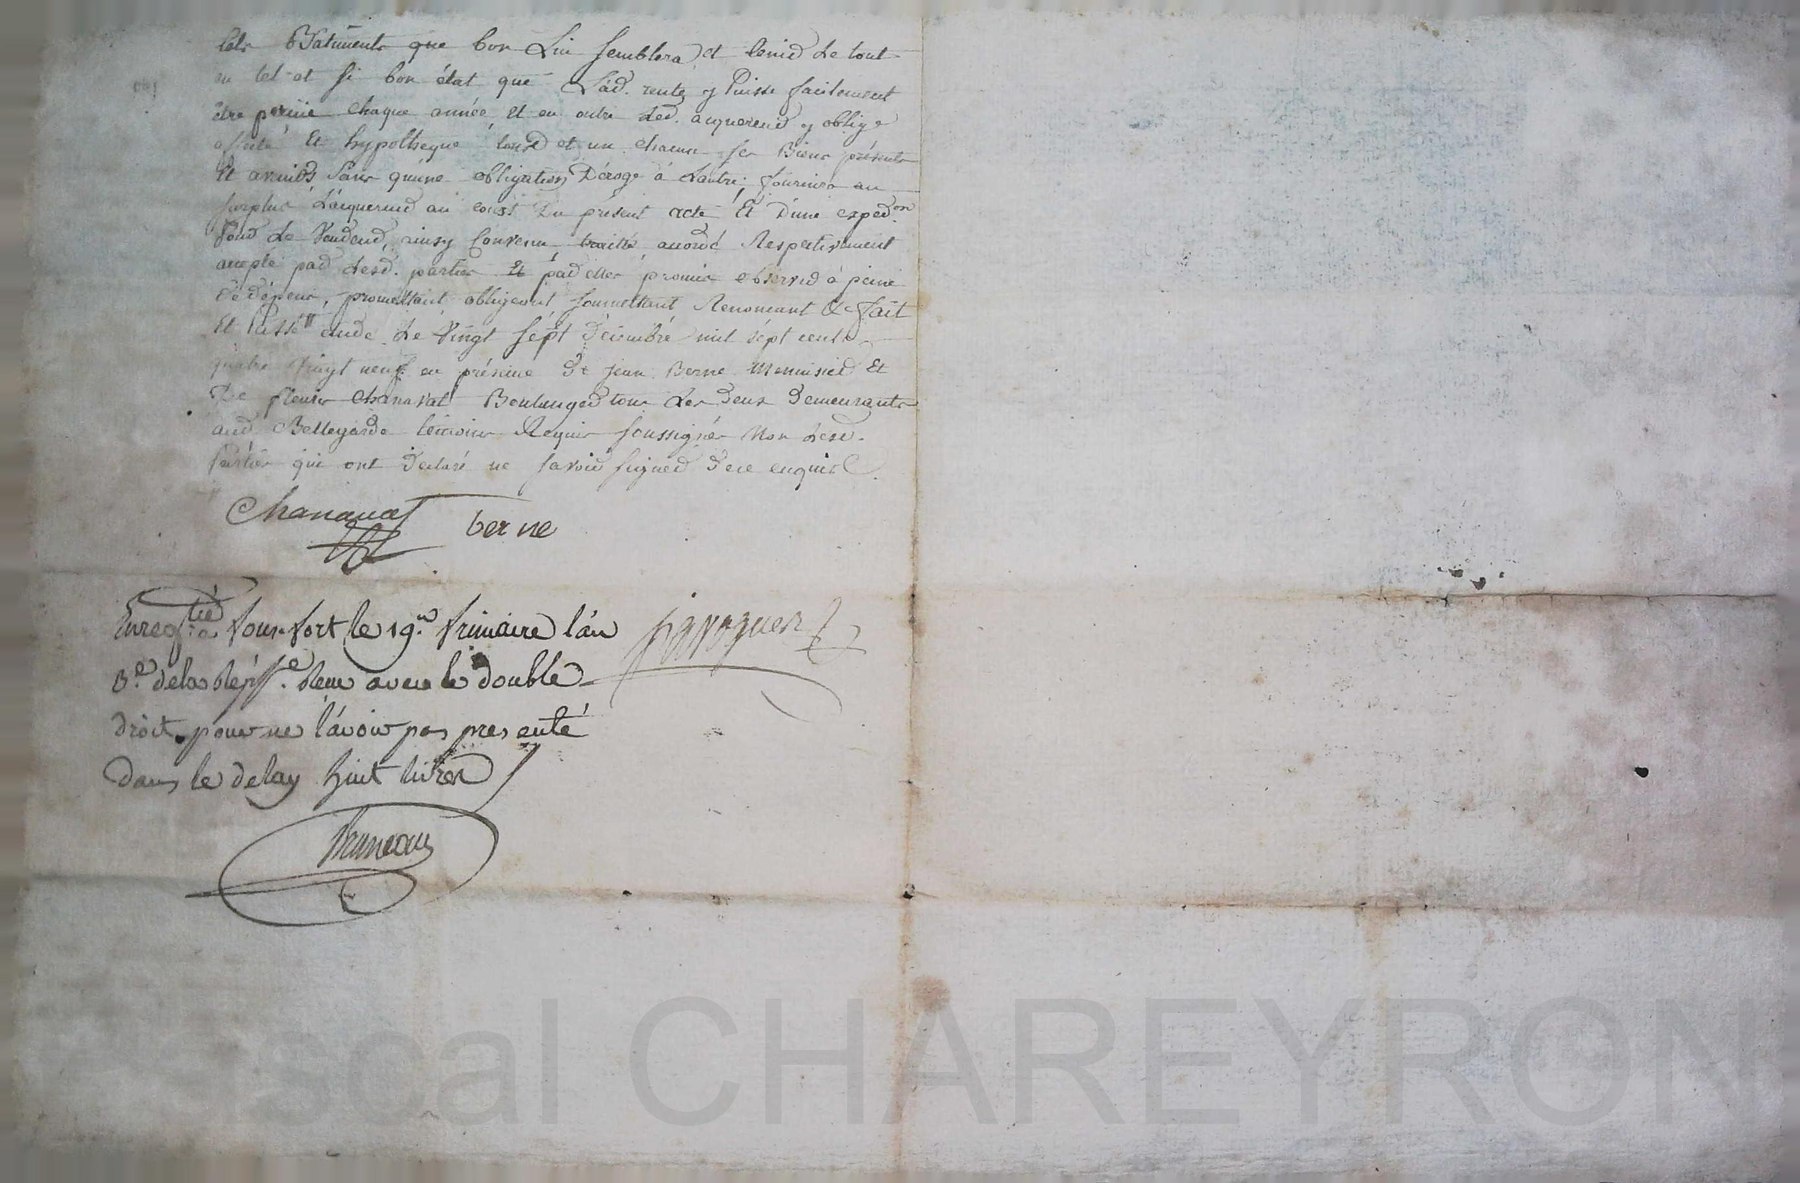 tels Batiments que bon Lui semblera et tenir Le tout
en tel et si bon état que Lad. rente y Puisse facilement
être perçüe chaque année Et en outre Led. acquereur y oblige
affecté Et hypotheque tous et un chacun ses Biens présents
Et avenirs sans qu'une obligation Déroge à L'autre fournira au
surplus L'acquereur au coust Du présent acte Et D'une exped.on
Pour Le Vendeur, ainsy Convenu traitté accordé Respectivement
accepté par Lesd. parties Et par elles promis observer à peine
De dépens, promettant obligeant soumettant Renoncant &c fait
Et Passé Le Vingt Sept Décembre mil sept cents
quatre Vingt neuf en présence De jean Berne Menuisier Et
De fleurie Chanavat Boulanger tous Les deux Demeurants
aud Bellegarde témoins Requis soussignés Non Lesd.
parties qui ont Déclaré ne savoir signer De ce enquis
Chanavat berne
Enreg.tré a le 19.e frimaire l'an
3.e de la Rép.e Reçu avec le double
droit pour ne l'avoir pas presenté
Dans le delay huit livres
javoguer